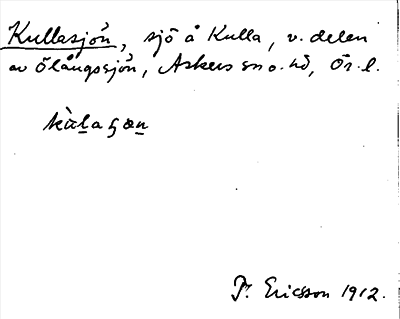 Kullasjön, sjö å Kulla, v. delen
av Ölångssjön, Askers sn o. hd, Ör. l.
Pr. Ericsson 1912.